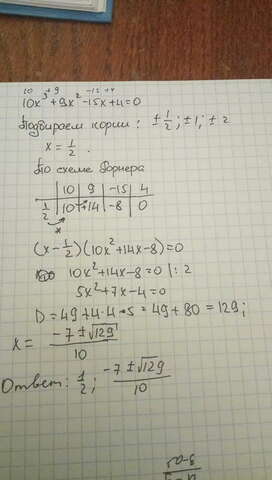 10 +9 -15 +4
10x³+9x²-15x+4=0
Подбираем корни: ±1/2; ±1; ±2
x=1/2.
По схеме Горнера
10 | 9 | -15 | 4
1/2 | 10 | +14 | -8 | 0
x
(x-1/2)(10x²+14x-8)=0
10x²+14x-8=0 |:2
5x²+7x-4=0
D=49+4·4·5=49+80=129;
x= (-7±√129)/10
Ответ: 1/2; (-7±√129)/10